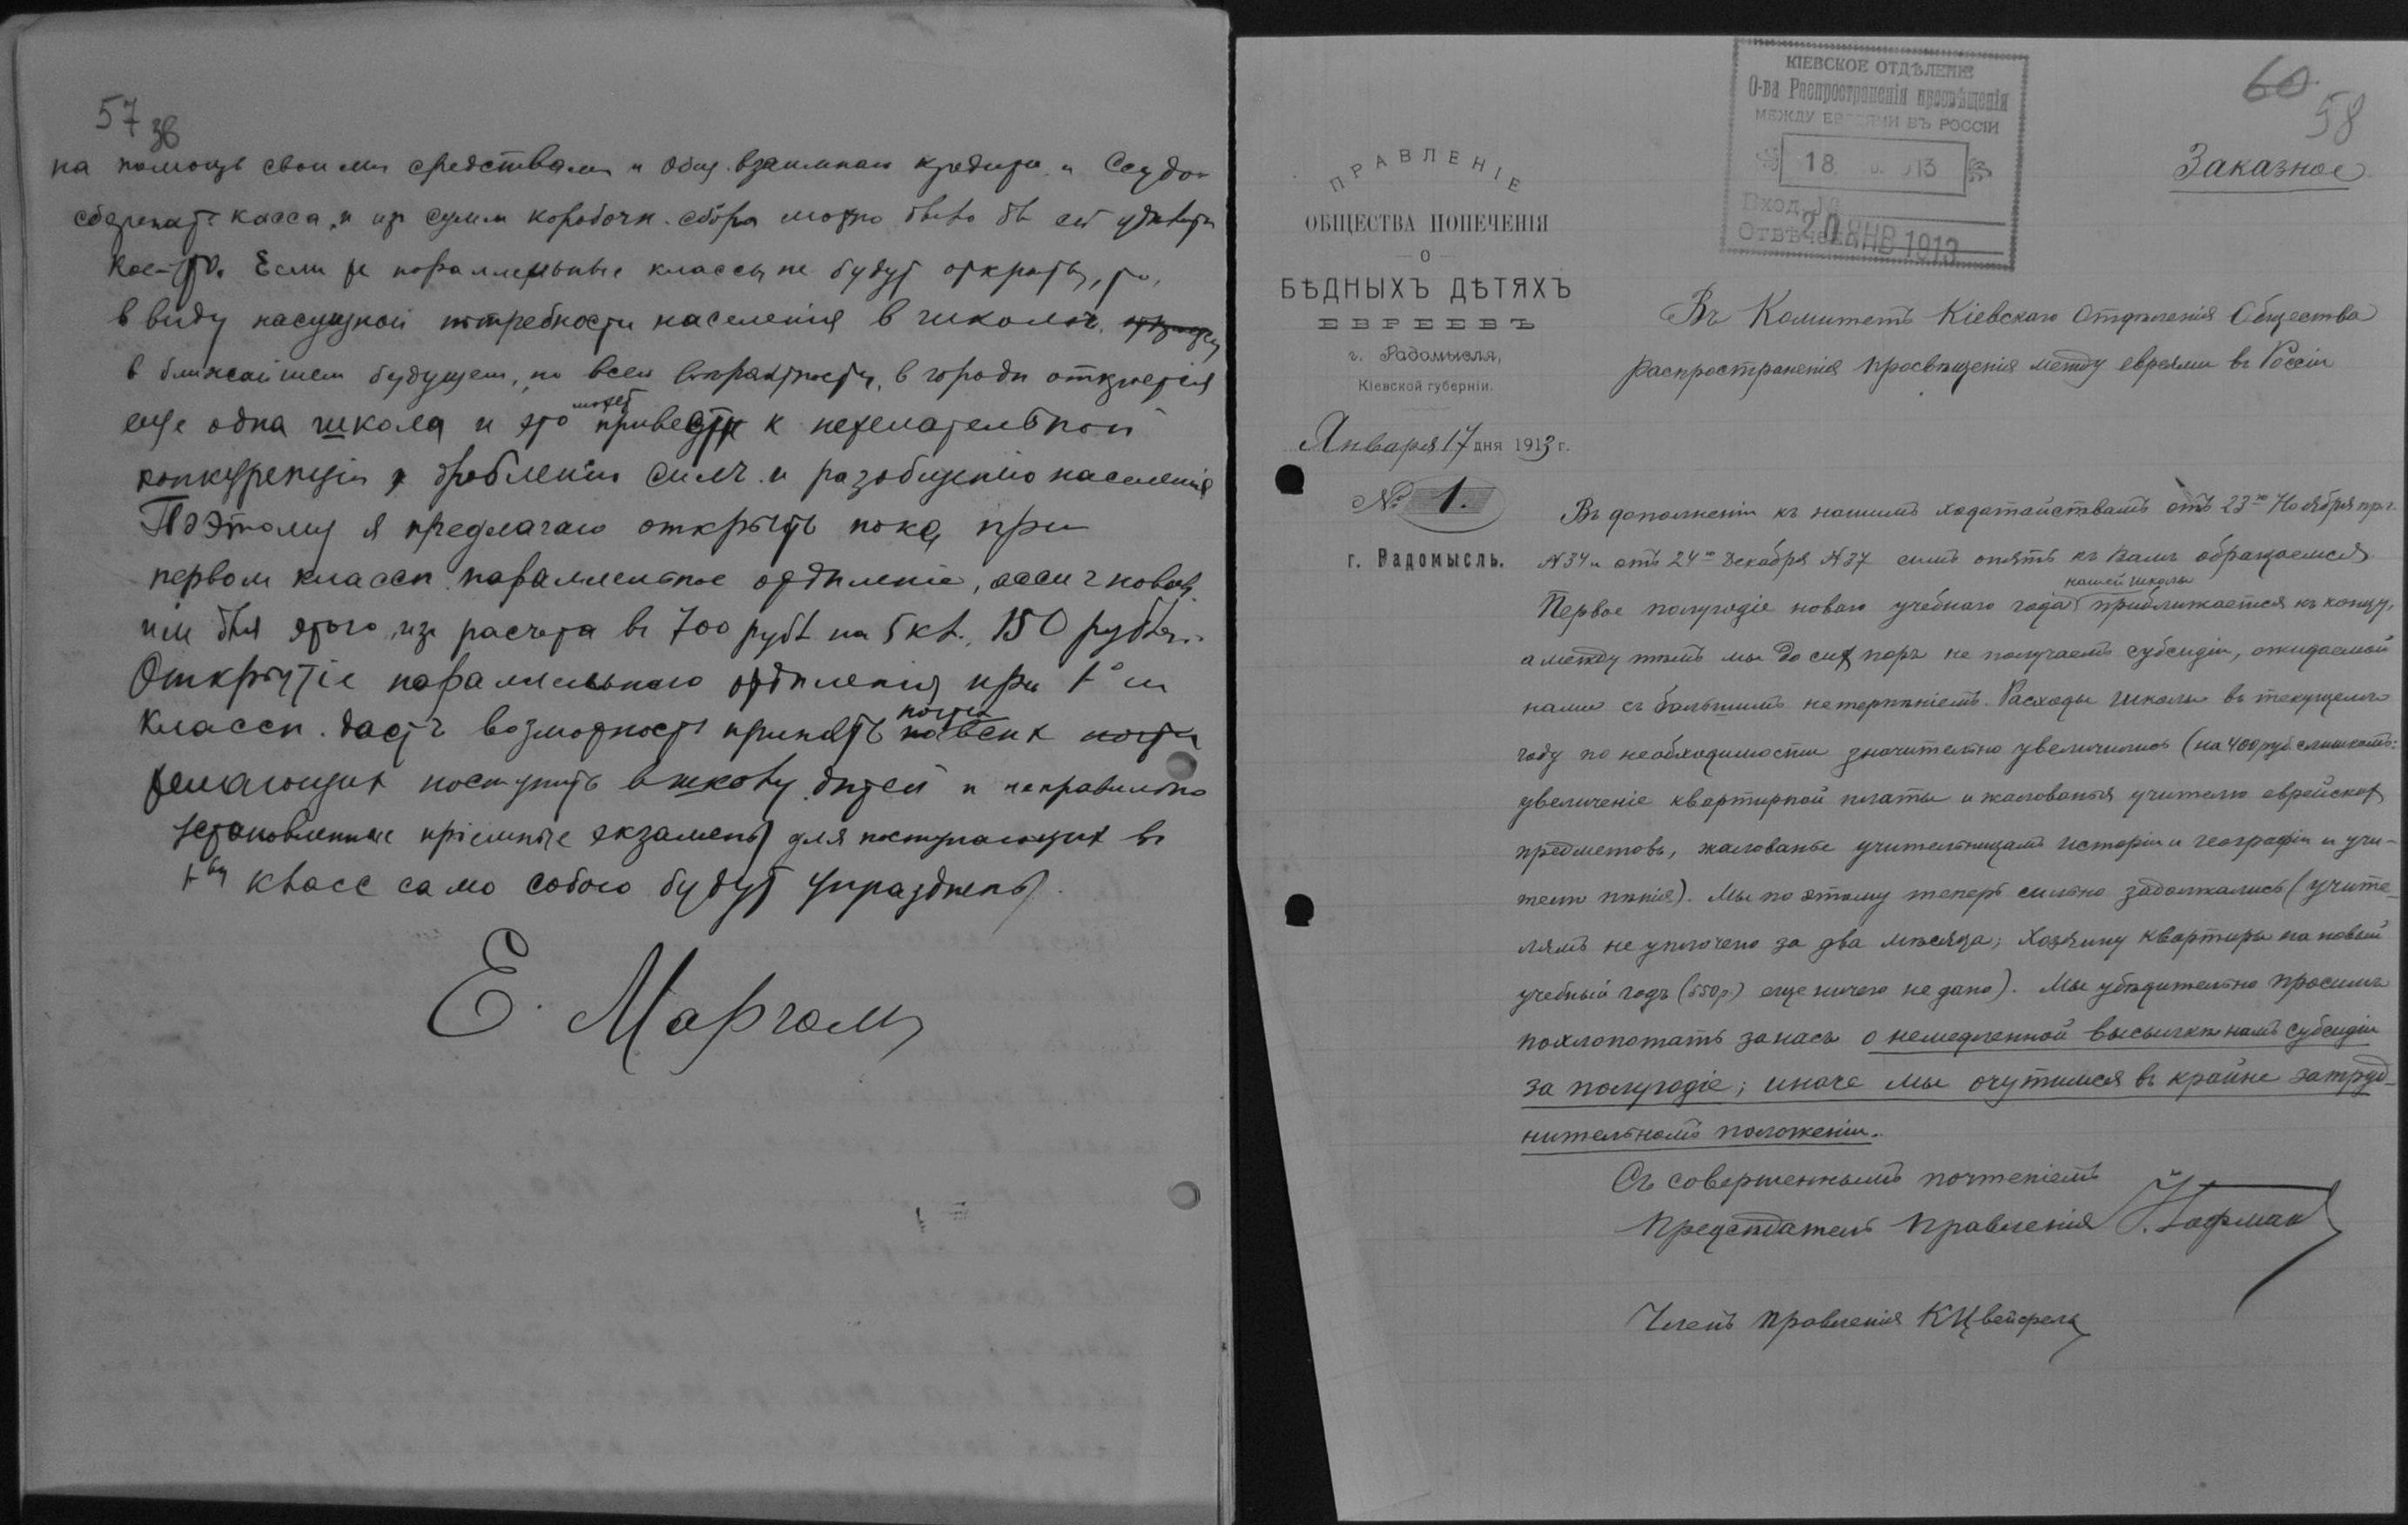 57 зв
на помощь своими средствами и Общ. взаимнаго кредита и Ссудо-
сберегат. касса, и из сумм коробочн. сбора можно было бы
кое-что. Если же параллельные классы не будут открыты, то,
в виду насущной потребности населенія в школах,
в ближайшем будущем, по всей вероятности, в городе откроется
еще одна школа и это может привести к нежелательной
конкуренціи, дробленію силъ и разобщенію населенія
Поэтому я предлагаю открыть пока при
первом классе параллельное отделеніе,
для этого, из расчета в 700 рубл на 5 кл., 150 рублей.
Открытіе параллельнаго отделенія при 1ом
классе дастъ возможность принять почти всех
желающих поступить в школу детей и неправильно
установленные пріемные экзамены для поступающих в
1ый класс само собою будут упразднены.
Е. Маргол
КІЕВСКОЕ ОТДѢЛЕНІЕ
О-ва Распространенія просвѣщенія
МЕЖДУ ЕВРЕЯМИ ВЪ РОССІИ
18 13
Вход. №
Отвѣчено 20 ЯНВ 1913
60
58
Заказное
ПРАВЛЕНІЕ
ОБЩЕСТВА ПОПЕЧЕНІЯ
О
БѢДНЫХЪ ДѢТЯХЪ
ЕВРЕЕВЪ
г. Радомысля,
Кіевской губерніи.
Января 17 дня 1913 г.
№ 1.
г. Радомысль.
Въ Комитетъ Кіевскаго Отдѣленія Общества
распространенія просвѣщенія между евреями въ Россіи
Въ дополненіи къ нашимъ ходатайствамъ отъ 23го Ноября пр. г.
№34 и отъ 24го Декабря №37 симъ опять къ Вамъ обращаемся
Первое полугодіе новаго учебнаго года нашей школы приближается къ концу,
а между тѣмъ мы до сих поръ не получаемъ субсидіи, ожидаемой
нами съ большимъ нетерпѣніемъ. Расходы школы въ текущемъ
году по необходимости значительно увеличились (на 400 руб слишкомъ:
увеличеніе квартирной платы и жалованья учителю еврейских
предметовъ, жалованье учительницамъ исторіи и географіи и учи-
телю пѣнія). Мы по этому теперь сильно задолжались (учите-
лямъ не уплочено за два мѣсяца; хозяину квартиры на новый
учебный годъ (550 р.) еще ничего не дано). Мы убѣдительно просимъ
похлопотать за насъ о немедленной высылкѣ намъ субсидіи
за полугодіе; иначе мы очутимся въ крайне затруд-
нительномъ положеніи.
Съ совершеннымъ почтеніемъ
Предсѣдатель Правленія Гофман
Членъ Правленія К Цвейфель